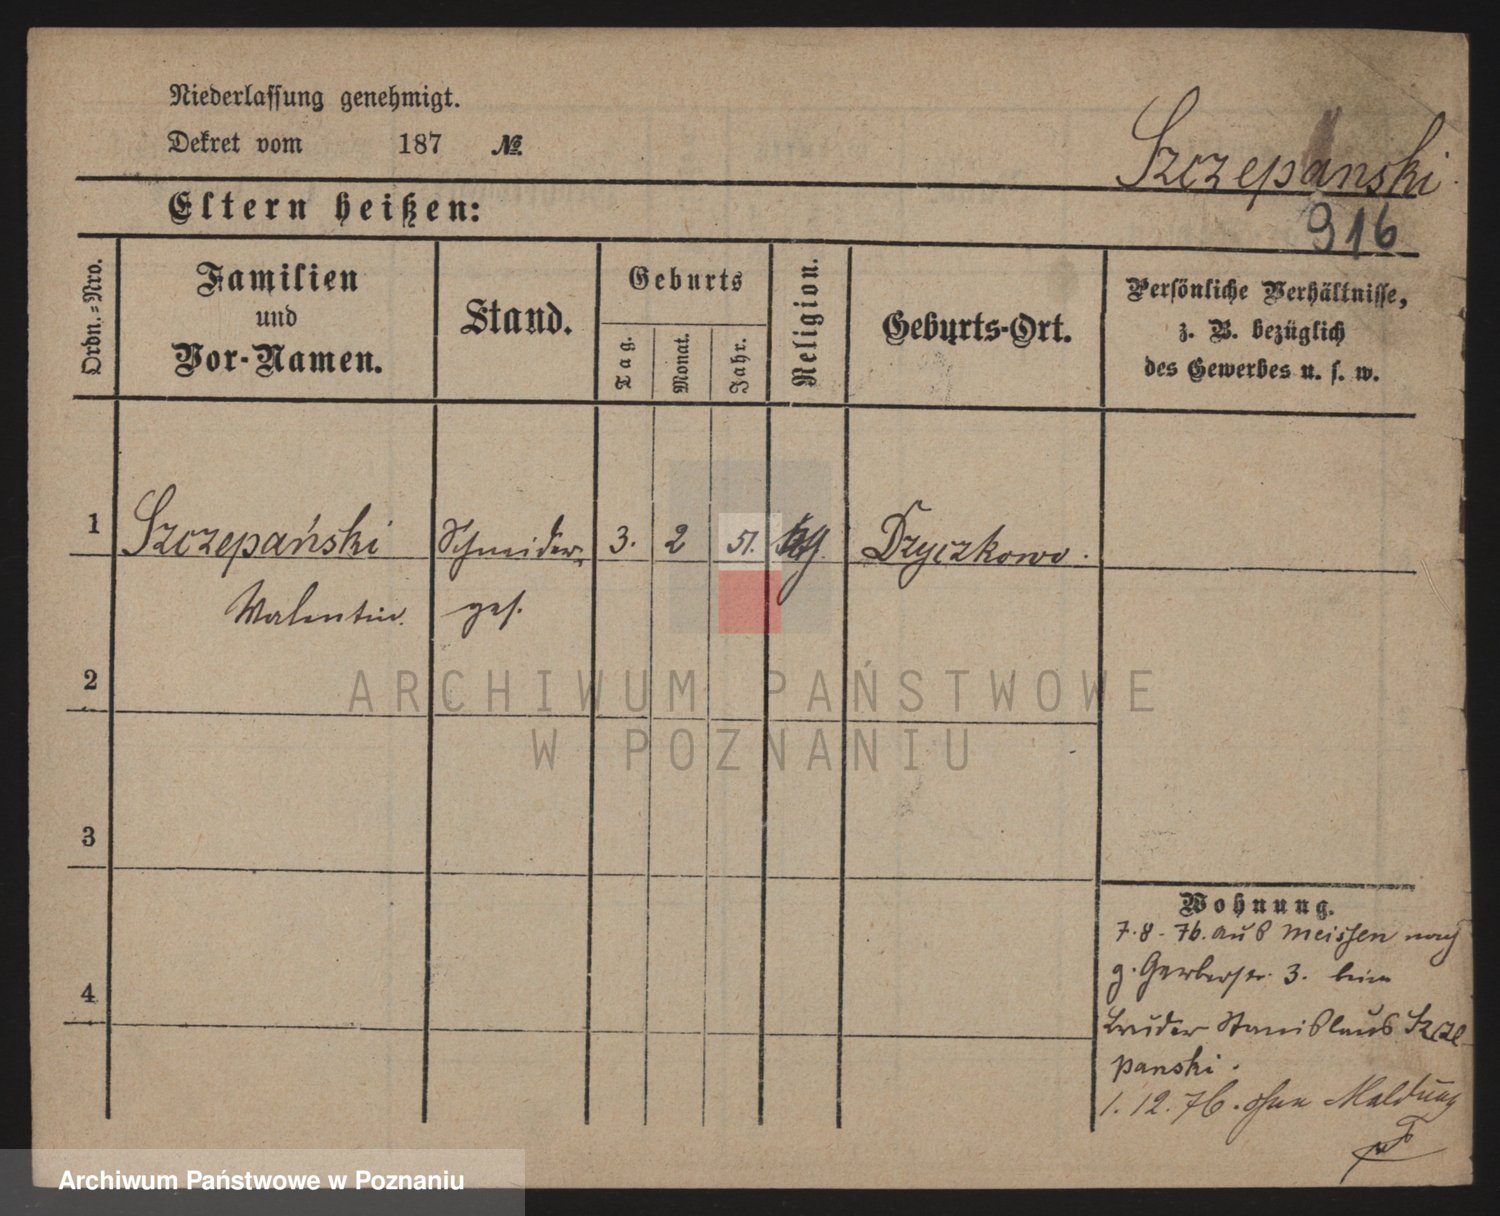 Niederlassung genehmigt.
Dekret vom 187 №.
Szczepanski
Eltern heißen:
916
Ordn.-Nro.
Familien
und
Vor-Namen.
Stand.
Geburts
Tag.
Monat.
Jahr.
Religion.
Geburts-Ort.
Persönliche Verhältnisse,
z. B. bezüglich
des Gewerbes u. s. w.
1 Szczepański Schneider 3. 2 51. Dzyczkowo.
Walentin. ges.
2
3
4
Wohnung.
7.8.76. aus Meissen nach
g. Gerberstr. 3. beim
Bruder Stanislaus Szcze
panski.
1.12.76. ohne Meldung
ARCHIWUM PAŃSTWOWE
W POZNANIU
Archiwum Państwowe w Poznaniu